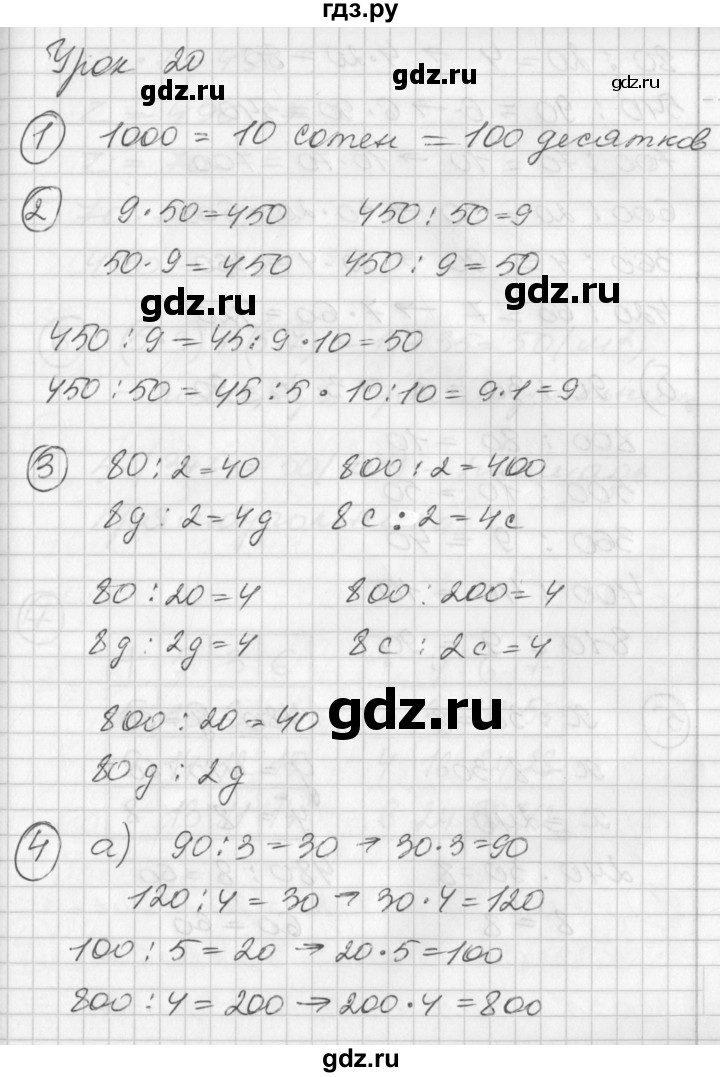 гдз.ру
Урок 20
gdz.ru gdz.ru gdz.ru
① 1000 = 10 сотен = 100 десятков
② 9·50=450 450:50=9
50·9=450 450:9=50
gdz.ru gdz.ru
450:9=45:9·10=50
450:50=45:5·10:10=9·1=9
③ 80:2=40 800:2=400
8д:2=4д 8с:2=4с
80:20=4 800:200=4
8д:2д=4 8с:2с=4
800:20=40
gdz.ru
80д:2д
④ а) 90:3=30 → 30·3=90
120:4=30 → 30·4=120
100:5=20 → 20·5=100
800:4=200 → 200·4=800
gdz.ru